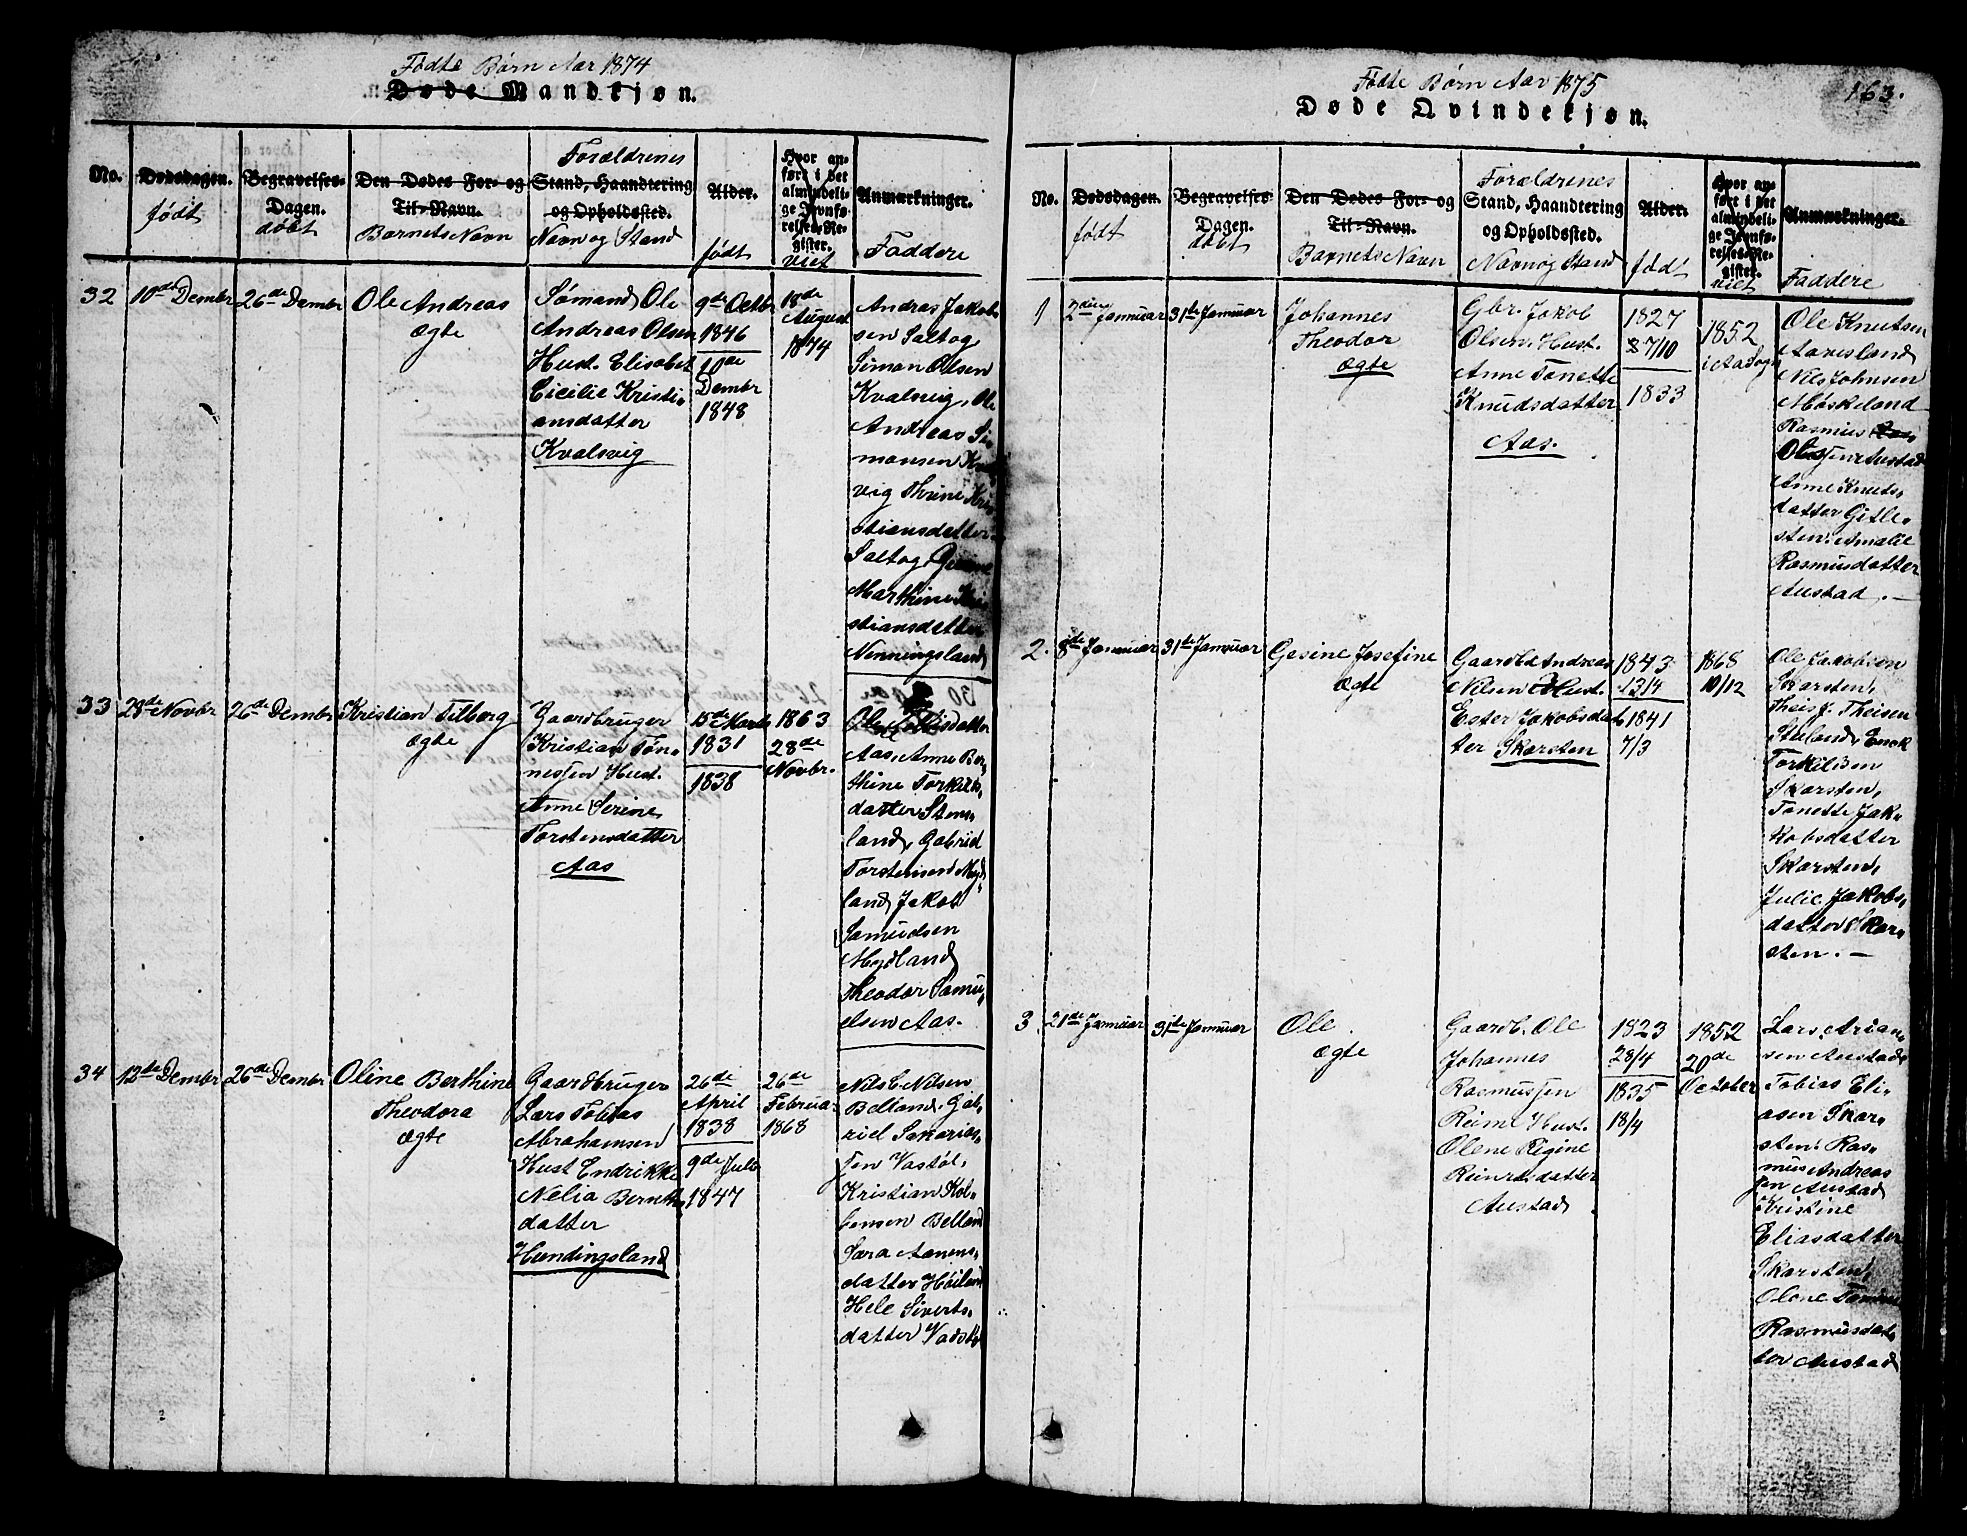 Fødte Børn Aar 1874
Døde Mandkjøn.
No.
Dødsdagen.
født
Begravelses-
Dagen.
døbt
Den Dødes For- og
Til-Navn.
Barnets Navn
Forældrenes
Stand, Haandtering
og Opholdssted.
Navn og Stand
Alder.
født
Hvor an-
ført i det
almindeli-
ge Jevnfø-
relses-Re-
gister.
viet
Anmærkninger.
Faddere
32
10de Dembr
26de Dembr
Ole Andreas
ægte
Sømand Ole
Andreas Olsen
Hust. Elisabet
Cicilie Kristi-
ansdatter
Kvalsvig
9de Octbr
1846
10de
Dembr
1848
18de
August
1874
Andreas Jakob-
sen Saltog
Siman Olsen
Kvalsvig, Ole
Andreas Si-
monsen
vig Thrine Kri-
stiansdatter
Saltog
Marthine Kri-
stiansdatter
Nenningsland
33
28de Novbr
26de Dembr
Kristian Tilborg
ægte
Gaardbruger
Kristian Tøn-
nessen Hust.
Anne Serine
Torstensdatter
Aas
15de Marts
1831
1838
1863
28de
Novbr.
Aas, Anne Ber-
thine Torkils-
datter Stens-
land, Gabriel
Torstensen Myd-
land Jakob
Samuelsen
Mydland
Theodor Samu-
elsen Aas.
34
12de Dembr
26de Dembr
Oline Berthine
Theodora
ægte
Gaardbruger
Lars Tobias
Abrahamsen
Hust Endrikke
Nelia Bernth-
datter
Hundingsland
26de
April
1838
9de Juli
1847
26de
Februa-
1868
Nils E Nilsen
Belland. Gab-
riel Sakarias-
sen Vastøl,
Kristian Kol-
bensen Belland
Sara Aanens-
datter Høiland
Hele Siverts-
datter Vadstøl
Fødte Børn Aar 1875
163.
Døde Qvindekjøn.
No.
Dødsdagen.
født
Begravelses-
Dagen.
døbt
Den Dødes For- og
Til-Navn.
Barnets Navn
Forældrenes
Stand, Haandtering
og Opholdssted.
Navn og Stand
Alder.
født
Hvor an-
ført i det
almindeli-
ge Jevnfø-
relses-Re-
gister.
viet
Anmærkninger.
Faddere
1
2den Januar
31te Januar
Johannes
Theodor
ægte
Gbr. Jakob
Olsen. Hust.
Anne Tonette
Knudsdatter
Aas.
1827
7/10
1833
1852
Ole Knutsen
Aavesland
Nils Johnsen
Møskeland
Rasmus
Olsen Austad
Anne Knuts-
datter Gitle-
sten. Amalie
Rasmusdatter
Austad. —
2.
8de Januar
31te Januar
Gesine Josefine
ægte
Gaardb. Andreas
Nilsen Hust.
Ester Jakobsdat-
ter Skarsten
1843
13/4
1841
7/3
1868
10/12
Ole Jakobsen
Skarsten,
Theis J. Theisen
Stuland, Enok
Torkilsen
Skarsten,
Tonette Jak-
kobsdatter
Skarsten,
Julie Jakobs-
datter Skar-
sten. —
3
21de Januar
31te Januar
Ole
ægte
Gaardb. Ole
Johannes
Rasmussen
Reime Hust.
Olene Regine
Reinertsdatter
Austad
1823
28/4
1835
18/4
1852
20de
October
Lars Arian-
sen Austad
Tobias Eli-
asen Skar-
sten. Ras-
mus Andreas
sen Austad
Kristine
Eliasdatter
Skarsten,
Olene
Rasmusdat-
ter Austad